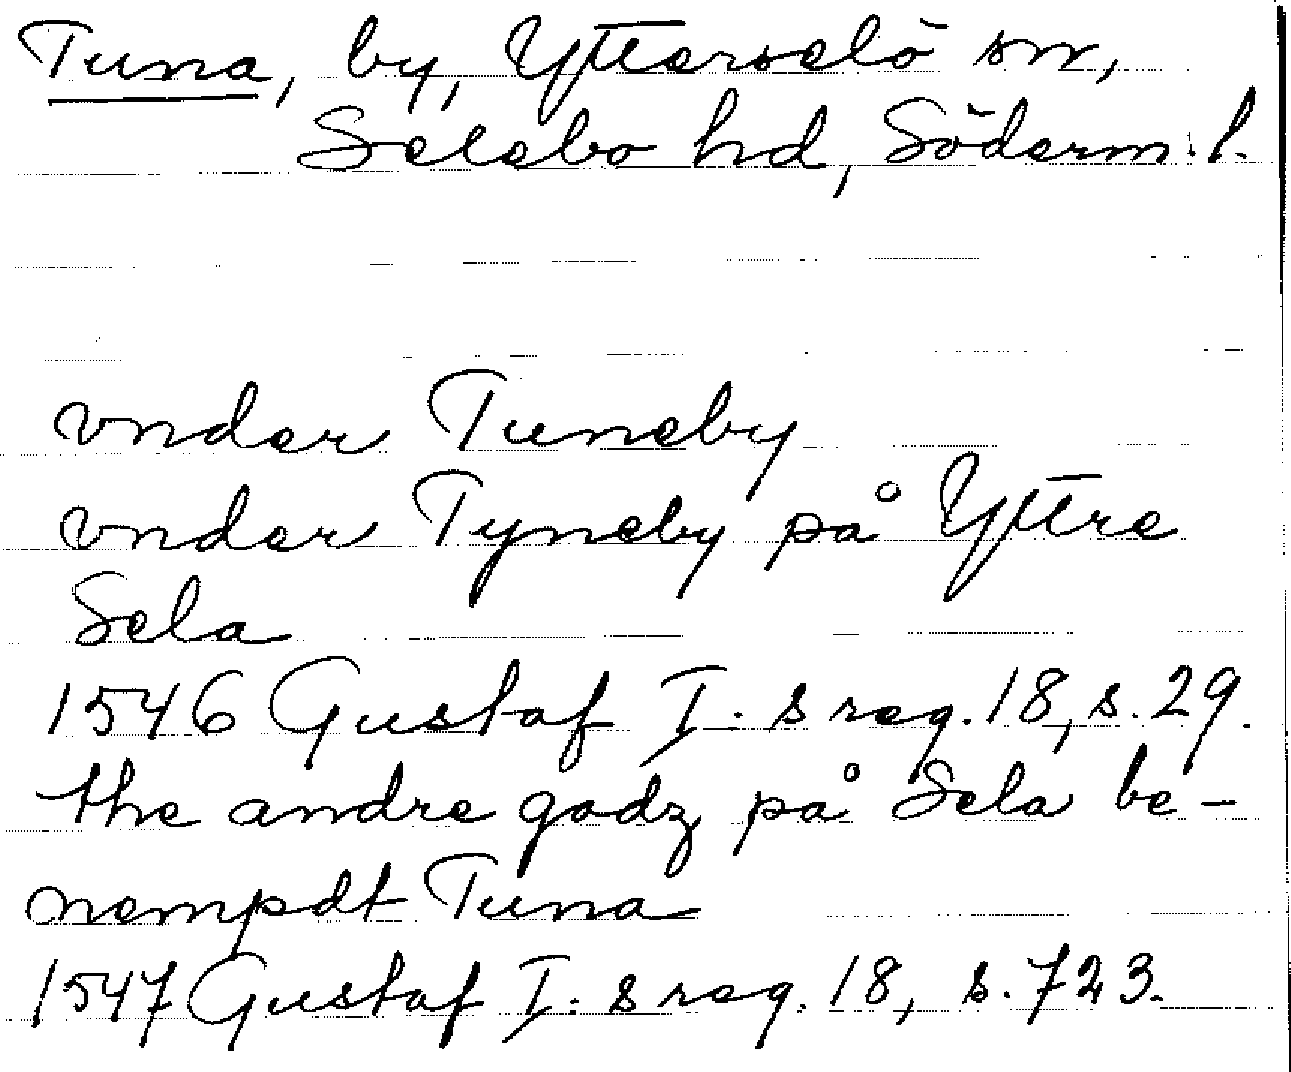 Tuna, by, Ytterselö sn,
Selebo hd, Söderm. l.
vnder Tuneby
vnder Tyneby på Yttre
Sela
1546 Gustaf I: s reg. 18, s. 29.
the andre godz på Sela be-
nempdt Tuna
1547 Gustaf I: s reg. 18, s. 723.